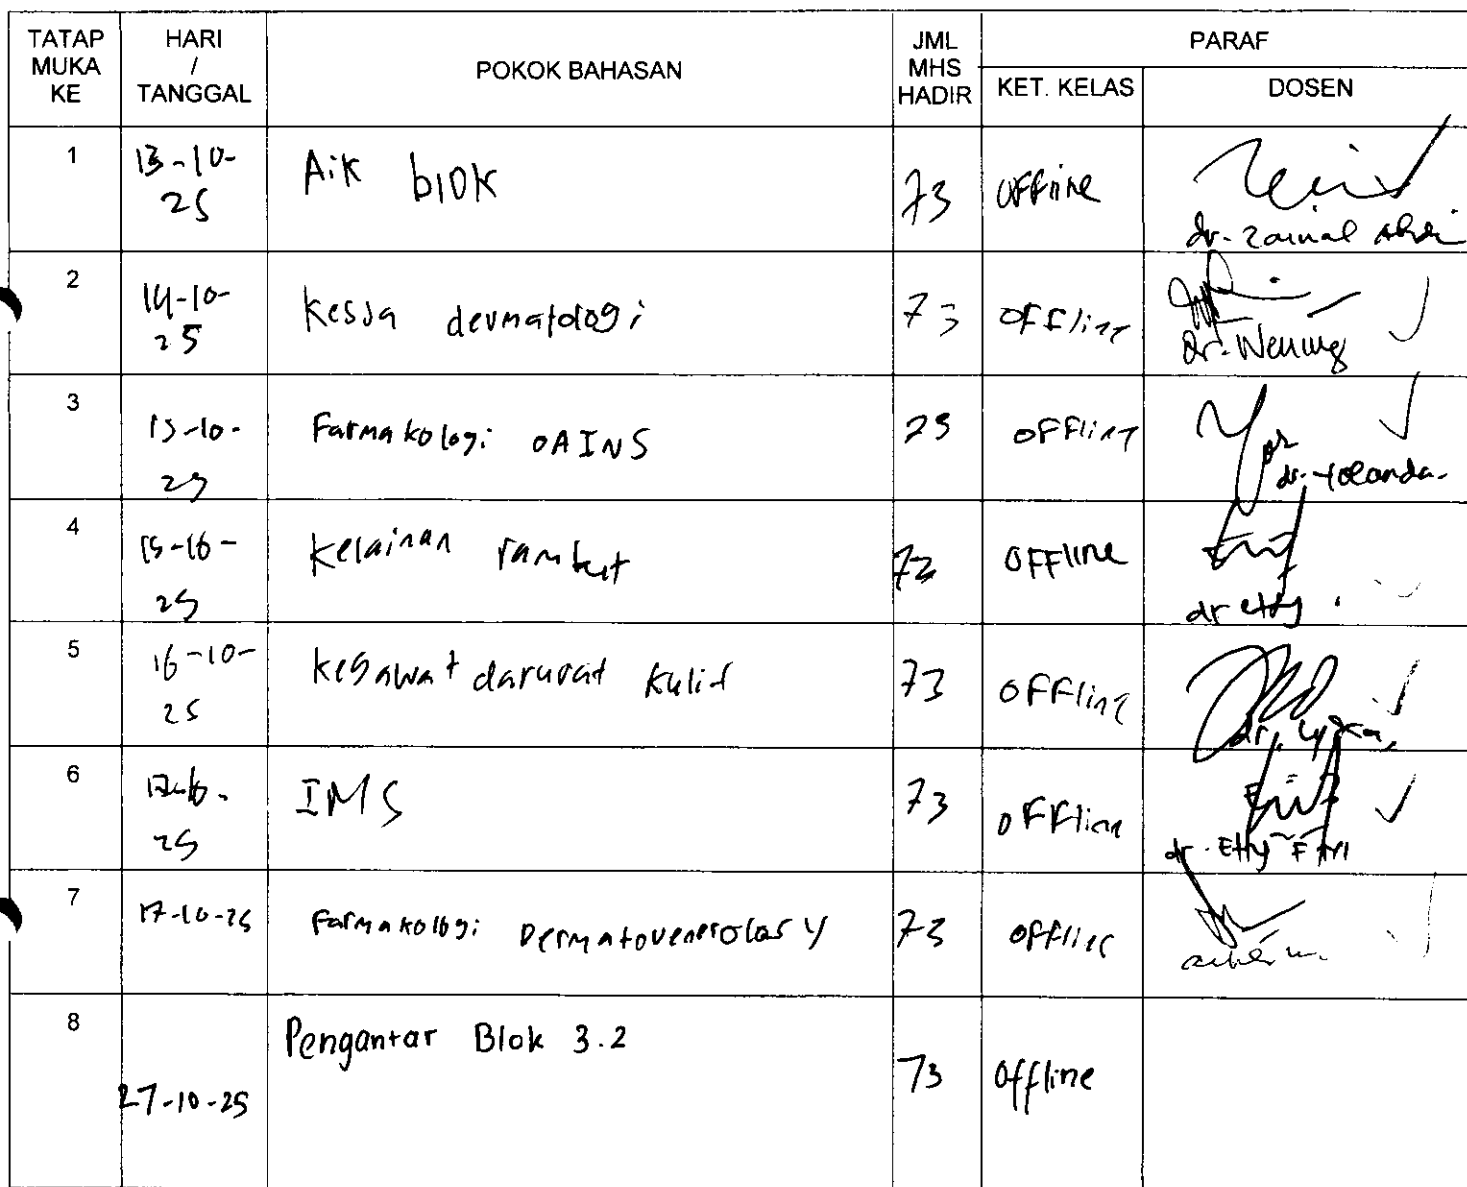 TATAP MUKA KE
HARI / TANGGAL
POKOK BAHASAN
JML MHS HADIR
PARAF
KET. KELAS
DOSEN
1
13-10-25
Aik blok
73
offline
dr. Zainal
2
14-10-25
dermatologi
73
offline
dr. Wening
3
15-10-25
Farmakologi OAINS
offline
dr. Yolanda.
4
15-10-25
Kelainan rambut
offline
dr etty
5
16-10-25
kegawat darurat kulit
73
offline
6
25
IMS
73
offline
dr. Etty Fitri
7
17-10-25
Farmakologi Dermatovenerology
73
offline
8
27-10-25
Pengantar Blok 3.2
73
offline